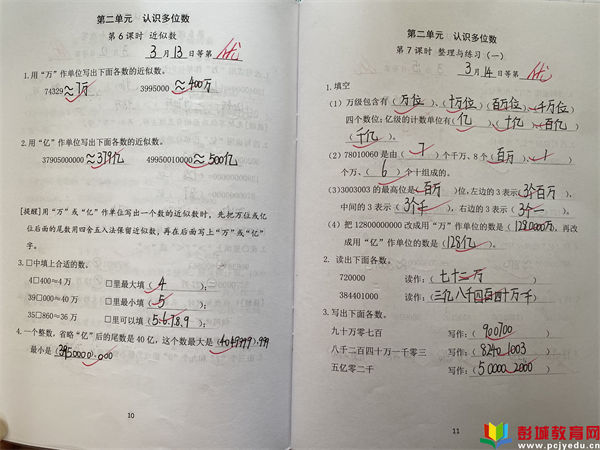 第二单元 认识多位数
第6课时 近似数
3月13日等第 优
1.用“万”作单位写出下面各数的近似数。
74329≈7万 3995000≈400万
2.用“亿”作单位写出下面各数的近似数。
37905000000≈379亿 49950010000≈500亿
[提醒]用“万”或“亿”作单位写出一个数的近似数时,先把万位或亿
位后面的尾数用四舍五入法保留近似数,再在后面写上“万”或“亿”
字。
3.□中填上合适的数。
4□400≈4万 □里最大填(4);
39□000≈40万 □里最小填(5);
35□860≈36万 □里可以填(5.6.7.8.9);
4.一个整数,省略“亿”后的尾数是40亿,这个数最大是
最小是
10
第二单元 认识多位数
第7课时 整理与练习(一)
3月14日等第 优
1.填空
(1)万级包含有(万位)、(十万位)(百万位)、(千万位)
四个数位;亿级的计数单位有(亿)、(十亿)、(百亿)
(千亿)。
(2)78010060是由(7)个千万、8个(百万)、(1)
个万、(6)个十组成的。
(3)3003003的最高位是(百万)位,左边的3表示(3个百万),
中间的3表示(3个千),右边的3表示(3个一)。
(4)把12800000000改成用“万”作单位的数是(1280000万),再改
成用“亿”作单位的数是(128亿)。
2. 读出下面各数。
720000 读作:(七十二万)
384401000 读作:(三亿八千四百四十万一千)
3.写出下面各数。
九十万零七百 写作:(900700)
八千二百四十万一千零三 写作:(82401003)
五亿零二千 写作:(500002000)
11
彭城教育网
www.pcjyedu.cn